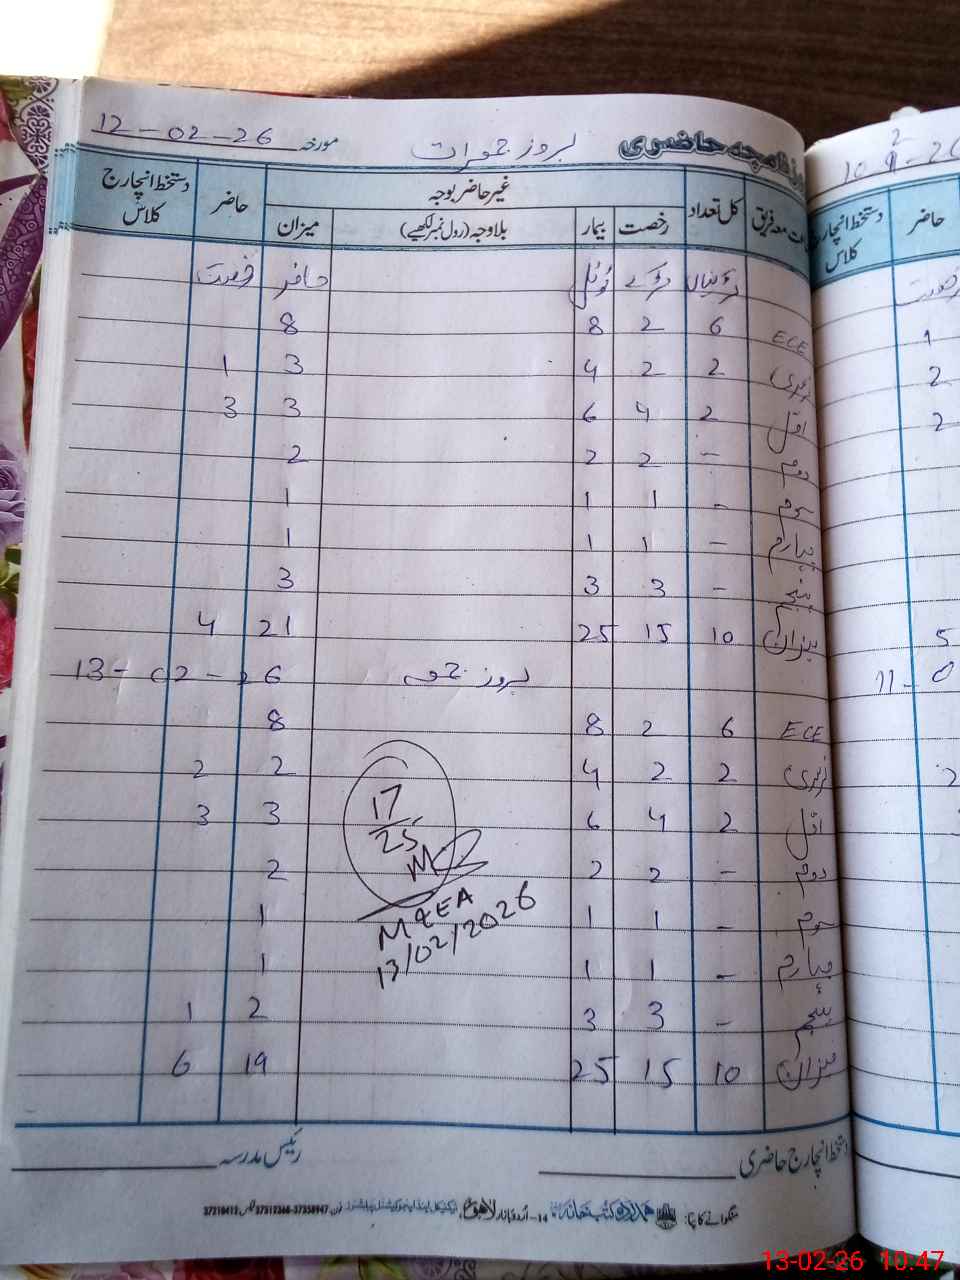 روزنامچہ حاضری بروز جمعرات مورخہ 12-02-26
جماعت معہ فریق کل تعداد غیر حاضر بوجہ حاضر دستخط انچارج کلاس
رخصت بیمار بلاوجہ (رول نمبر لکھیے) میزان
لڑکیاں لڑکے ٹوٹل حاضر رخصت
ECE 6 2 8 8
نرسری 2 2 4 3 1
اول 2 4 6 3 3
دوم - 2 2 2
سوم - 1 1 1
چہارم - 1 1 1
پنجم - 3 3 3
میزان 10 15 25 21 4
بروز جمعہ 13-02-26
ECE 6 2 8 8
نرسری 2 2 4 2 2
اول 2 4 6 3 3
دوم - 2 2 2
سوم - 1 1 1
چہارم - 1 1 1
پنجم - 3 3 2 1
میزان 10 15 25 19 6
17/25
M&EA
13/02/2026
دستخط انچارج حاضری رئیس مدرسہ
منگوانے کا پتا: ہمدرد کتب خانہ 14-اُردو بازار لاہور فون 37312368-37358947 فیکس 37210412
10-2-26
حاضر دستخط انچارج کلاس
رخصت
1
2
2
5
11-0
2
13-02-26 10:47